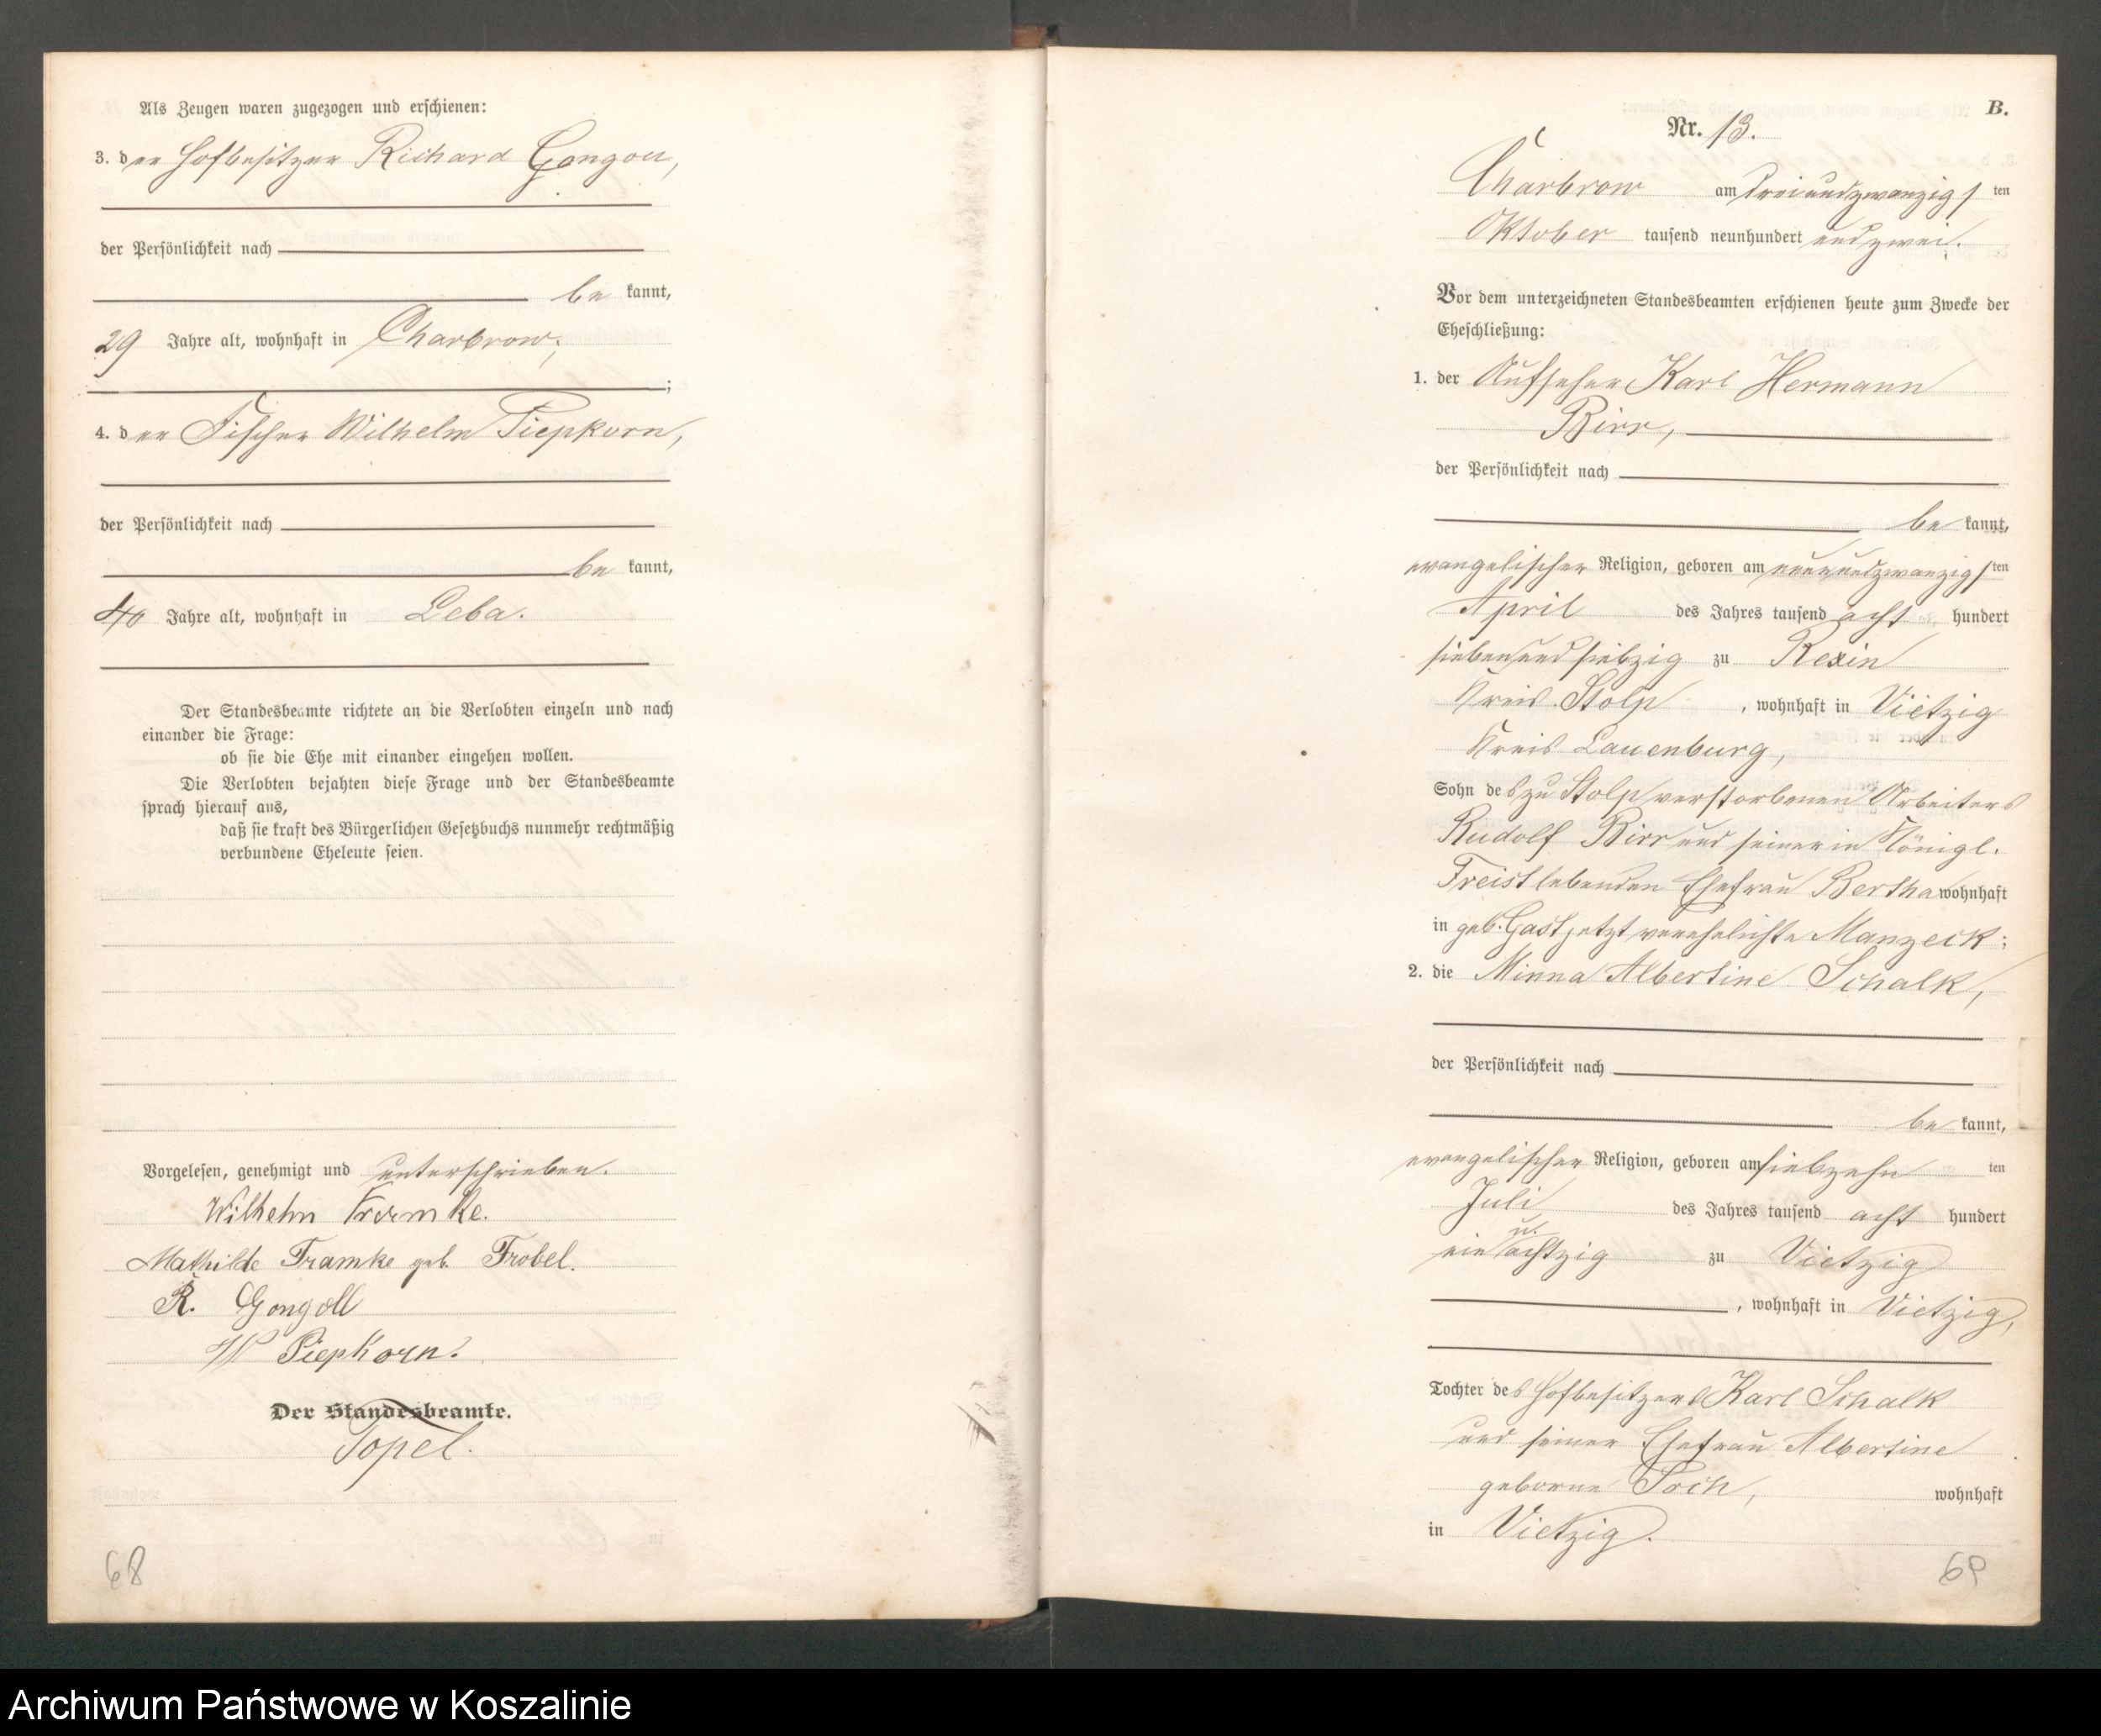 Als Zeugen waren zugezogen und erschienen:
3. der Hofbesitzer Richard Gongoll,
der Persönlichkeit nach
be kannt,
29 Jahre alt, wohnhaft in Charbrow,
;
4. der Fischer Wilhelm Piepkorn,
der Persönlichkeit nach
be kannt,
40 Jahre alt, wohnhaft in Leba.
Der Standesbeamte richtete an die Verlobten einzeln und nach
einander die Frage:
ob sie die Ehe mit einander eingehen wollen.
Die Verlobten bejahten diese Frage und der Standesbeamte
sprach hierauf aus,
daß sie kraft des Bürgerlichen Gesetzbuchs nunmehr rechtmäßig
verbundene Eheleute seien.
Vorgelesen, genehmigt und unterschrieben.
Wilhelm Framke.
Mathilde Framke geb. Frobel.
R. Gongoll
W Piepkorn.
Der Standesbeamte.
Topel.
68
B.
Nr. 13.
Charbrow am dreiundzwanzigs ten
Oktober tausend neunhundert und zwei.
Vor dem unterzeichneten Standesbeamten erschienen heute zum Zwecke der
Eheschließung:
1. der Aufseher Karl Hermann
Birr,
der Persönlichkeit nach
be kannt,
evangelischer Religion, geboren am neunundzwanzigs ten
April des Jahres tausend acht hundert
siebenundsiebzig zu Rexin
Kreis Stolp , wohnhaft in Vietzig
Kreis Lauenburg,
Sohn des zu Stolp verstorbenen Arbeiters
Rudolf Birr und seiner in Königl.
Freist lebenden Ehefrau Bertha wohnhaft
in geb. Gast jetzt verehelichte Manzeck;
2. die Minna Albertine Schalk,
der Persönlichkeit nach
be kannt,
evangelischer Religion, geboren am siebzehn ten
Juli des Jahres tausend acht hundert
ein u. achtzig zu Vietzig
, wohnhaft in Vietzig,
Tochter des Hofbesitzers Karl Schalk
und seiner Ehefrau Albertine
geborne Poch, wohnhaft
in Vietzig.
69
Archiwum Państwowe w Koszalinie